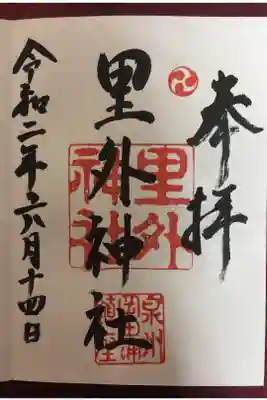 奉拝
里外神社
令和二年六月十四日
里外
神社
泉州
岡田浦
鎮座